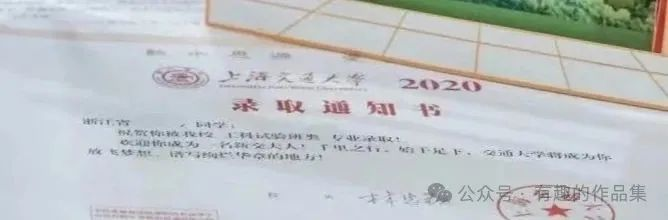 饮水思源
上海交通大学 2020
SHANGHAI JIAO TONG UNIVERSITY
录取通知书
浙江省 同学：
祝贺你被我校 工科试验班类 专业录取！
欢迎你成为一名新交大人！千里之行，始于足下，交通大学将成为你
放飞梦想、谱写绚烂华章的地方！
校 长
公众号 · 有趣的作品集